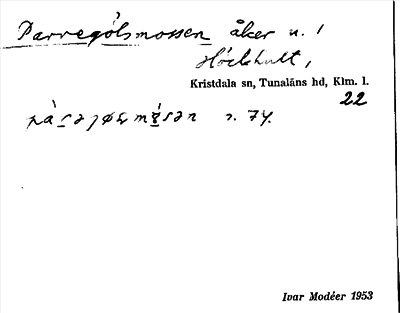 Parregölsmossen åker n. 1
Höckhult,
Kristdala sn, Tunaläns hd, Klm. l.
22
s. 74.
Ivar Modéer 1953